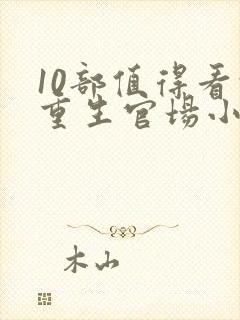 10部值得看
重生官场小
木山